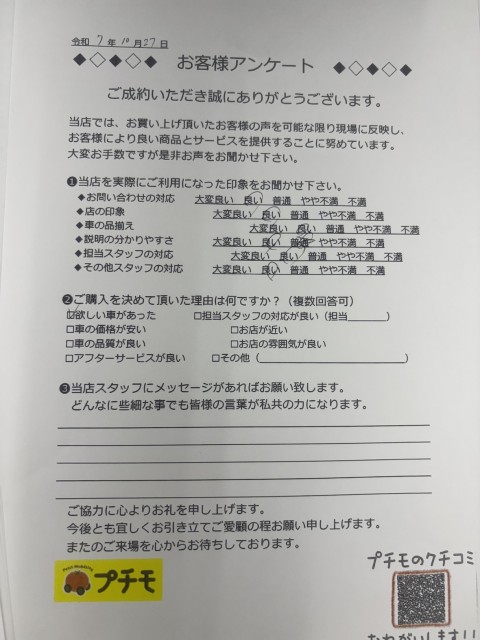 令和 7 年 10 月 27 日
◆◇◆◇◆ お客様アンケート ◆◇◆◇◆
ご成約いただき誠にありがとうございます。
当店では、お買い上げ頂いたお客様の声を可能な限り現場に反映し、
お客様により良い商品とサービスを提供することに努めています。
大変お手数ですが是非お声をお聞かせ下さい。
❶当店を実際にご利用になった印象をお聞かせ下さい。
◆お問い合わせの対応 大変良い 良い 普通 やや不満 不満
◆店の印象 大変良い 良い 普通 やや不満 不満
◆車の品揃え 大変良い 良い 普通 やや不満 不満
◆説明の分かりやすさ 大変良い 良い 普通 やや不満 不満
◆担当スタッフの対応 大変良い 良い 普通 やや不満 不満
◆その他スタッフの対応 大変良い 良い 普通 やや不満 不満
❷ご購入を決めて頂いた理由は何ですか？（複数回答可）
☑欲しい車があった □担当スタッフの対応が良い（担当______）
□車の価格が安い □お店が近い
□車の品質が良い □お店の雰囲気が良い
□アフターサービスが良い □その他（______）
❸当店スタッフにメッセージがあればお願い致します。
どんなに些細な事でも皆様の言葉が私共の力になります。
ご協力に心よりお礼を申し上げます。
今後とも宜しくお引き立てご愛顧の程お願い申し上げます。
またのご来場を心からお待ちしております。
プチモ
プチモのクチコミ
おねがいします!!